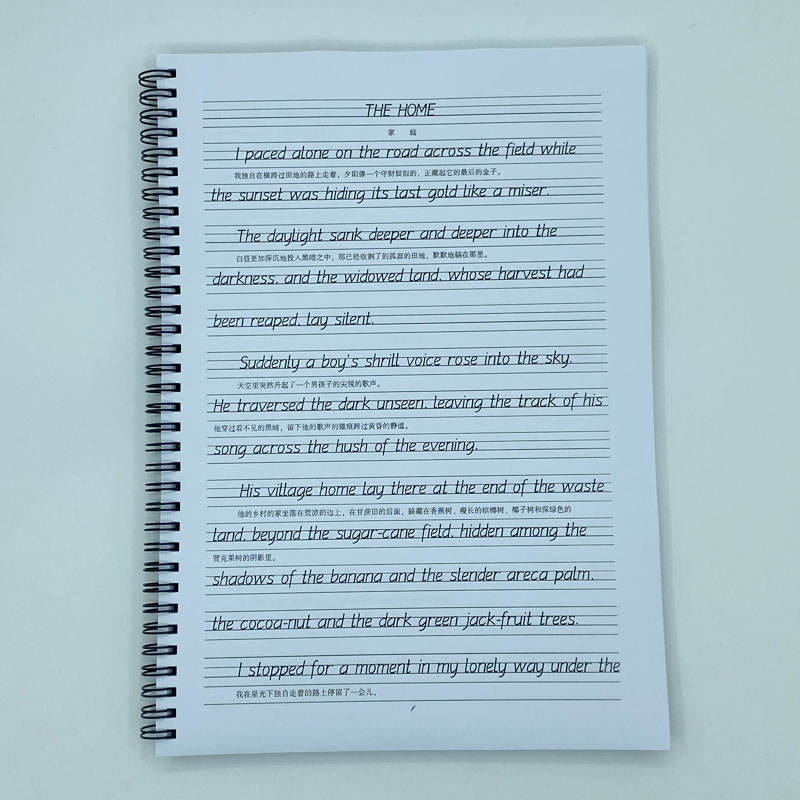 THE HOME
家 庭
I paced alone on the road across the field while
我独自在横跨过田地的路上走着，夕阳像一个守财奴似的，正藏起它的最后的金子。
the sunset was hiding its last gold like a miser.
The daylight sank deeper and deeper into the
白昼更加深沉地投入黑暗之中，那已经收割了的孤寂的田地，默默地躺在那里。
darkness. and the widowed land. whose harvest had
been reaped. lay silent.
Suddenly a boy's shrill voice rose into the sky.
天空里突然升起了一个男孩子的尖锐的歌声。
He traversed the dark unseen. leaving the track of his
他穿过看不见的黑暗，留下他的歌声的辙痕跨过黄昏的静谧。
song across the hush of the evening.
His village home lay there at the end of the waste
他的乡村的家坐落在荒凉的边上，在甘蔗田的后面，躲藏在香蕉树、瘦长的槟榔树、椰子树和深绿色的
land. beyond the sugar-cane field. hidden among the
贾克果树的阴影里。
shadows of the banana and the slender areca palm.
the cocoa-nut and the dark green jack-fruit trees.
I stopped for a moment in my lonely way under the
我在星光下独自走着的路上停留了一会儿，